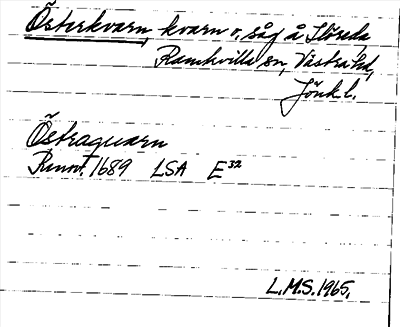 Österkvarn, kvarn o. såg å Slöreda
Ramkvilla sn, Västra hd,
Jönk. l.
Östraquarn
Rmnt. 1689 LSA E32
L.M.S. 1965.